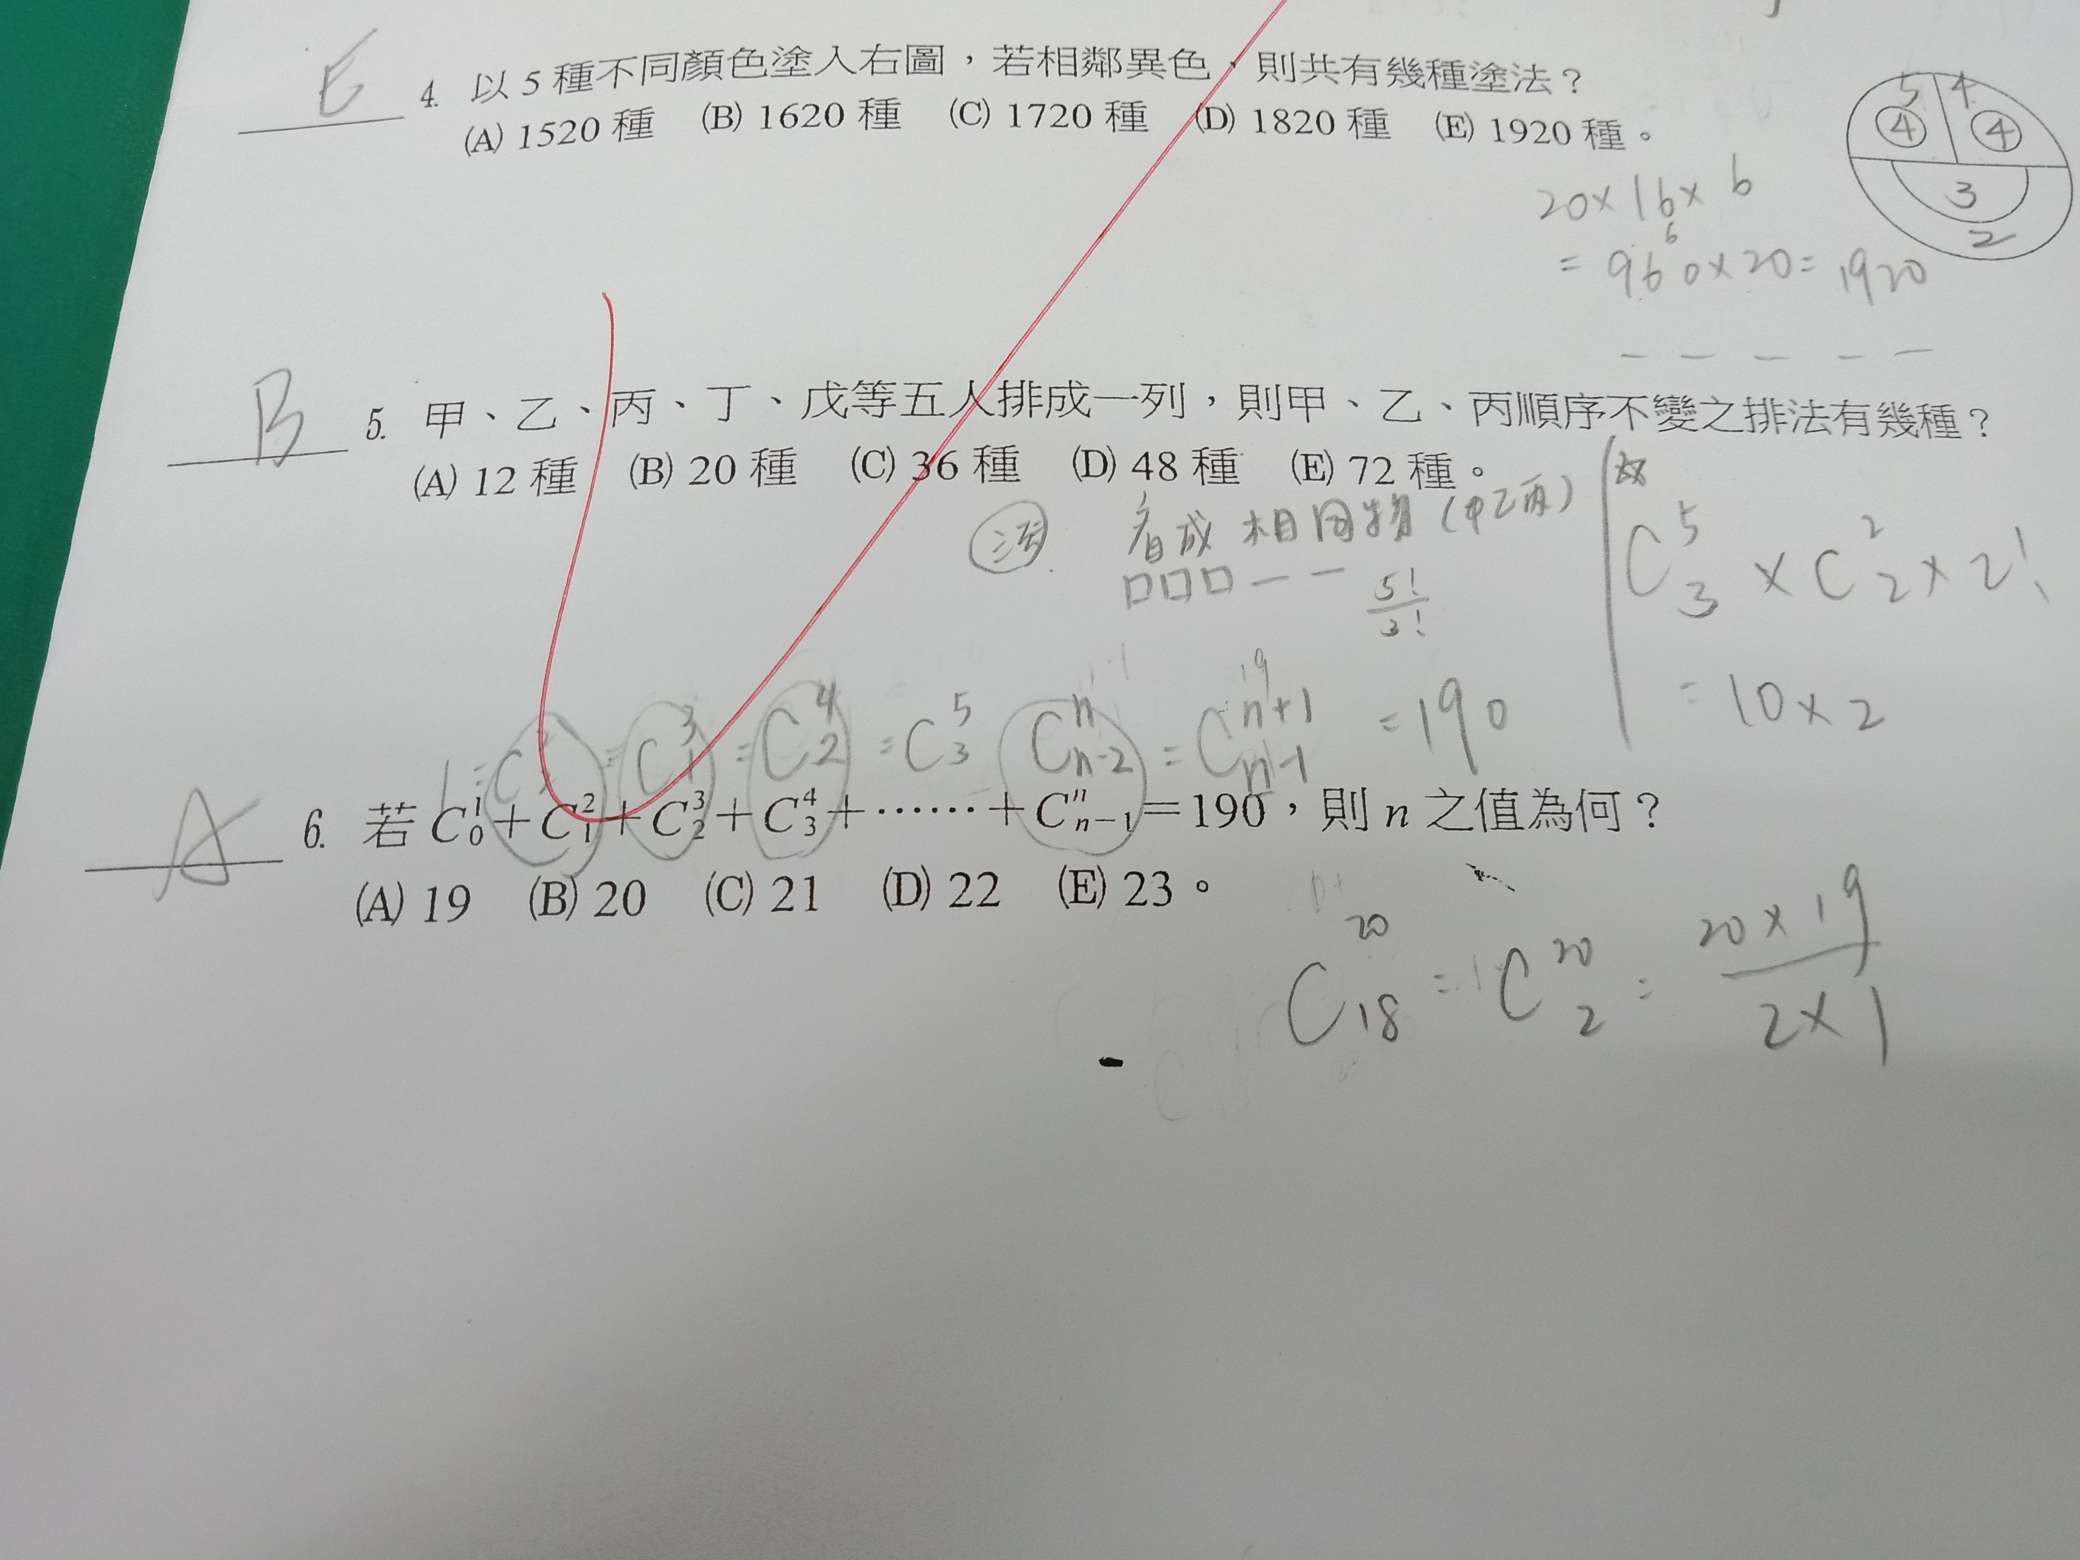 E 4. 以 5 種不同顏色塗入右圖，若相鄰異色，則共有幾種塗法？
(A) 1520 種 (B) 1620 種 (C) 1720 種 (D) 1820 種 (E) 1920 種。
5 4
④ ④
3
2
20×16×6
= 960×20= 1920
B 5. 甲、乙、丙、丁、戊等五人排成一列，則甲、乙、丙順序不變之排法有幾種？
(A) 12 種 (B) 20 種 (C) 36 種 (D) 48 種 (E) 72 種。
看成相同物(甲乙丙)
□□□ — — 5!/3!
C⁵₃ × C²₂ × 2!
= 10×2
1 = = C³₁ = C⁴₂ = C⁵₃ Cⁿₙ₋₂ = Cⁿ⁺¹ₙ₋₁ = 190
19
A 6. 若 C¹₀+C²₁+C³₂+C⁴₃+……+Cⁿₙ₋₁=190，則 n 之值為何？
(A) 19 (B) 20 (C) 21 (D) 22 (E) 23。
C²⁰₁₈ = C²⁰₂ = 20×19/2×1